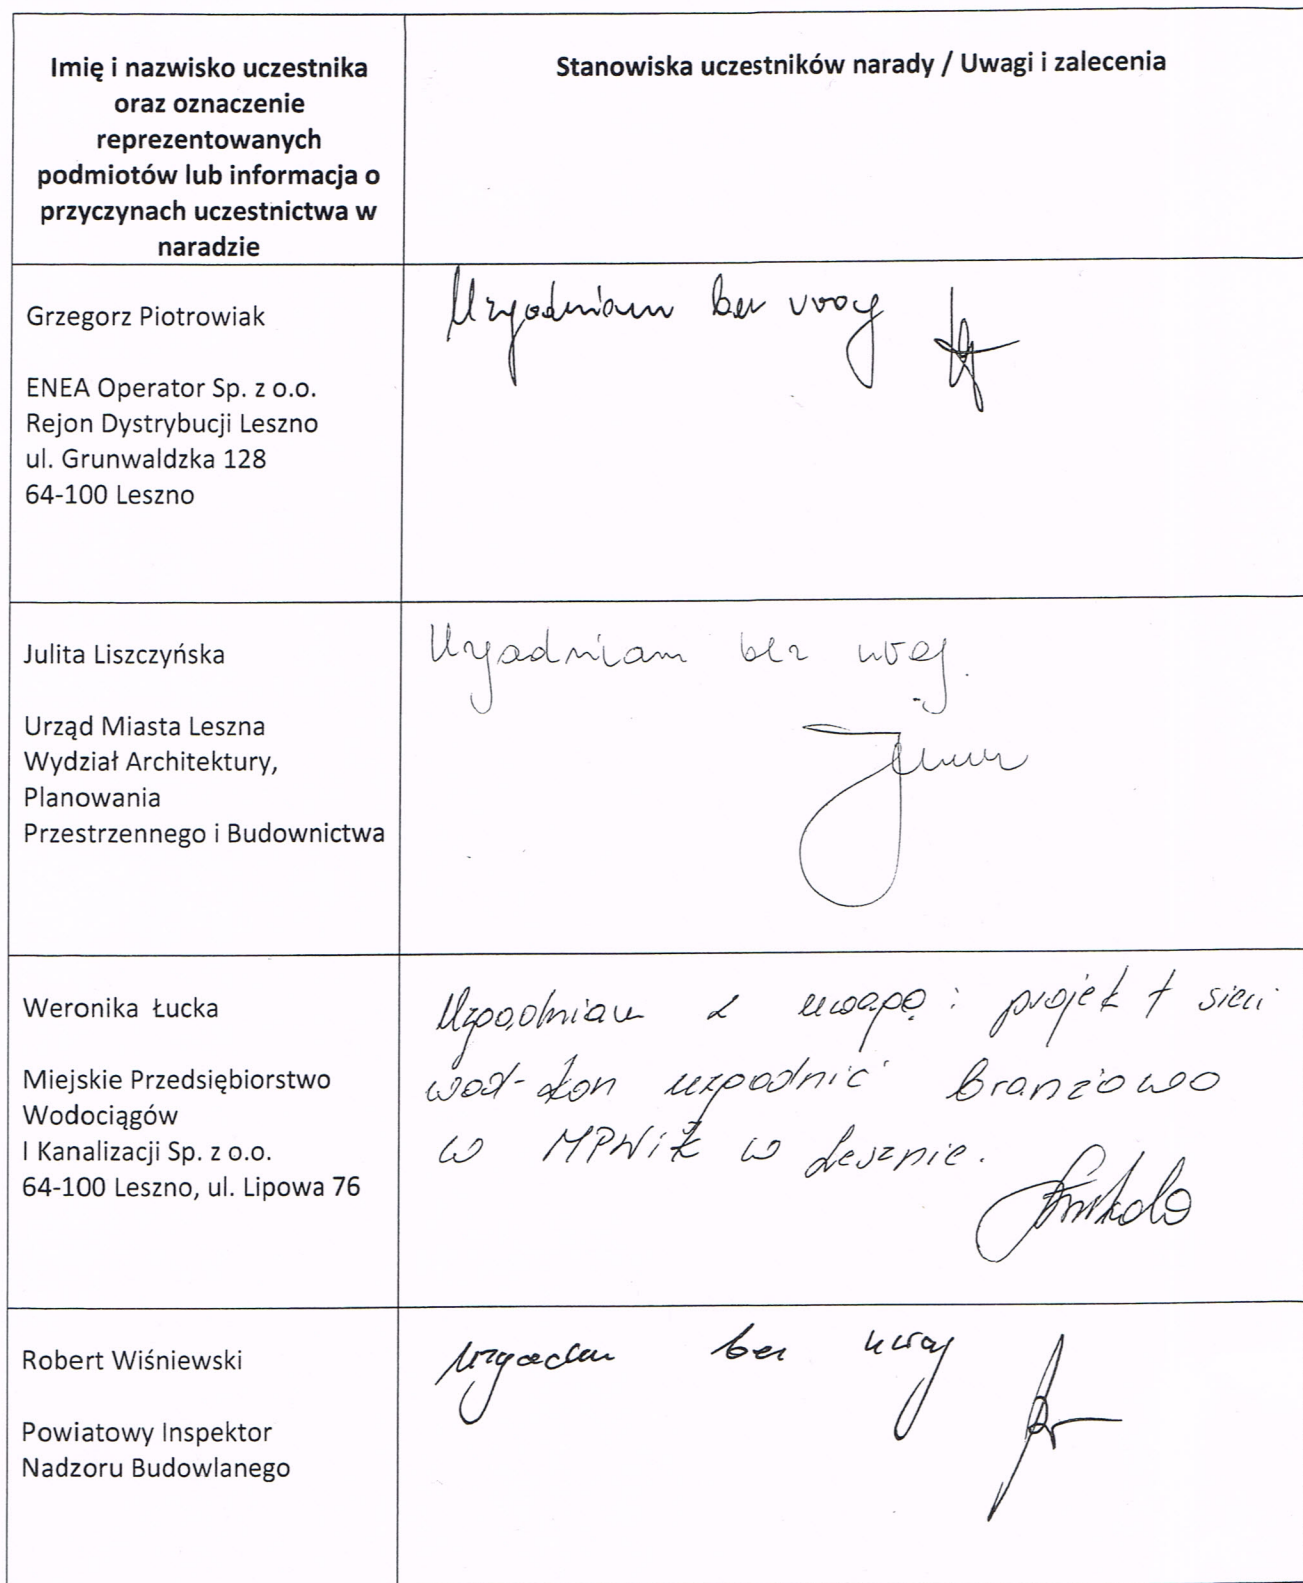 Imię i nazwisko uczestnika
oraz oznaczenie
reprezentowanych
podmiotów lub informacja o
przyczynach uczestnictwa w
naradzie
Stanowiska uczestników narady / Uwagi i zalecenia
Grzegorz Piotrowiak
ENEA Operator Sp. z o.o.
Rejon Dystrybucji Leszno
ul. Grunwaldzka 128
64-100 Leszno
Uzgodniam bez uwag
Julita Liszczyńska
Urząd Miasta Leszna
Wydział Architektury,
Planowania
Przestrzennego i Budownictwa
Uzgadniam bez uwag.
Weronika Łucka
Miejskie Przedsiębiorstwo
Wodociągów
I Kanalizacji Sp. z o.o.
64-100 Leszno, ul. Lipowa 76
Uzgodniam z uwagą: projekt sieci
wod-kon uzgodnić branżowo
w MPWiK w Lesznie.
Robert Wiśniewski
Powiatowy Inspektor
Nadzoru Budowlanego
bez uwag